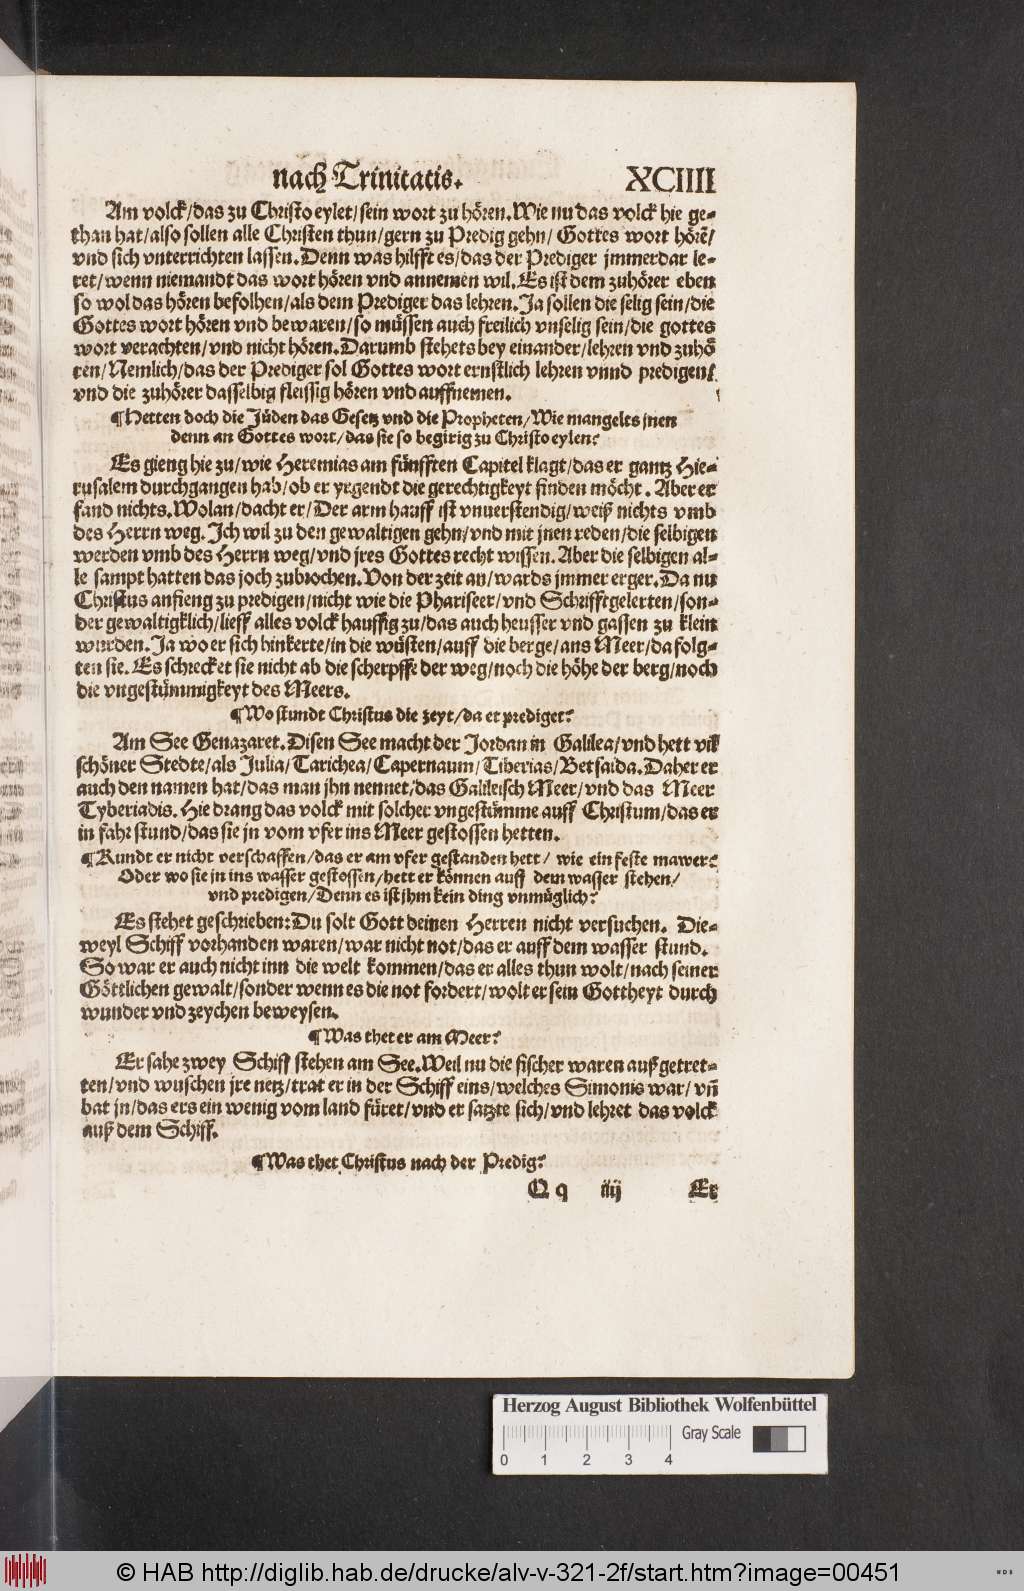 nach Trinitatis. XCIIII
Am volck/das zu Christo eylet/sein wort zu hören. Wie nu das volck hie ge-
than hat/also sollen alle Christen thun/gern zu Predig gehn/ Gottes wort hörẽ/
vnd sich vnterrichten lassen. Denn was hilfft es/das der Prediger jmmerdar le-
ret/wenn niemandt das wort hören vnd annemen wil. Es ist dem zuhörer eben
so wol das hören befolhen/als dem Prediger das lehren. Ja sollen die selig sein/die
Gottes wort hören vnd bewaren/so müssen auch freilich vnselig sein/die gottes
wort verachten/vnd nicht hören. Darumb stehets bey einander/lehren vnd zuhö
ren/Nemlich/das der Prediger sol Gottes wort ernstlich lehren vnnd predigen/
vnd die zuhörer dasselbig fleissig hören vnd auffnemen.
¶Hetten doch die Jüden das Gesetz vnd die Propheten/Wie mangelts jnen
denn an Gottes wort/das sie so begirig zu Christo eylen?
Es gieng hie zu/wie Heremias am fünfften Capitel klagt/das er gantz Hie-
rusalem durchgangen hab/ob er yrgendt die gerechtigkeyt finden möcht. Aber er
fand nichts. Wolan/dacht er/Der arm hauff ist vnuerstendig/weiß nichts vmb
des Herrn weg. Ich wil zu den gewaltigen gehn/vnd mit jnen reden/die selbigen
werden vmb des Herrn weg/vnd jres Gottes recht wissen. Aber die selbigen al-
le sampt hatten das joch zubrochen. Von der zeit an/wards jmmer erger. Da nu
Christus anfieng zu predigen/nicht wie die Phariseer/vnd Schrifftgelerten/son-
der gewaltigklich/lieff alles volck hauffig zu/das auch heusser vnd gassen zu klein
wurden. Ja wo er sich hinkerte/in die wüsten/auff die berge/ans Meer/da folg-
ten sie. Es schrecket sie nicht ab die scherpffe der weg/noch die höhe der berg/noch
die vngestümmigkeyt des Meers.
¶Wo stundt Christus die zeyt/da er prediget?
Am See Genazaret. Disen See macht der Jordan in Galilea/vnd hett vil
schöner Stedte/als Julia/Tarichea/Capernaum/Tiberias/Betsaida. Daher er
auch den namen hat/das man jhn nennet/das Galileisch Meer/vnd das Meer
Tyberiadis. Hie drang das volck mit solcher vngestümme auff Christum/das er
in fahr stund/das sie jn vom vfer ins Meer gestossen hetten.
¶Kundt er nicht verschaffen/das er am vfer gestanden hett/ wie ein feste mawer?
Oder wo sie jn ins wasser gestossen/hett er können auff dem wasser stehen/
vnd predigen/Denn es ist jhm kein ding vnmüglich?
Es stehet geschrieben: Du solt Gott deinen Herren nicht versuchen. Die-
weyl Schiff vorhanden waren/war nicht not/das er auff dem wasser stund.
So war er auch nicht inn die welt kommen/das er alles thun wolt/nach seiner
Göttlichen gewalt/sonder wenn es die not fordert/wolt er sein Gottheyt durch
wunder vnd zeychen beweysen.
¶Was thet er am Meer?
Er sahe zwey Schiff stehen am See. Weil nu die fischer waren auß getret-
ten/vnd wuschen jre netz/trat er in der Schiff eins/welches Simonis war/vñ
bat jn/das ers ein wenig vom land füret/vnd er satzte sich/vnd lehret das volck
auß dem Schiff.
¶Was thet Christus nach der Predig?
Q q iiij Er
Herzog August Bibliothek Wolfenbüttel
Gray Scale
0 1 2 3 4
© HAB http://diglib.hab.de/drucke/alv-v-321-2f/start.htm?image=00451